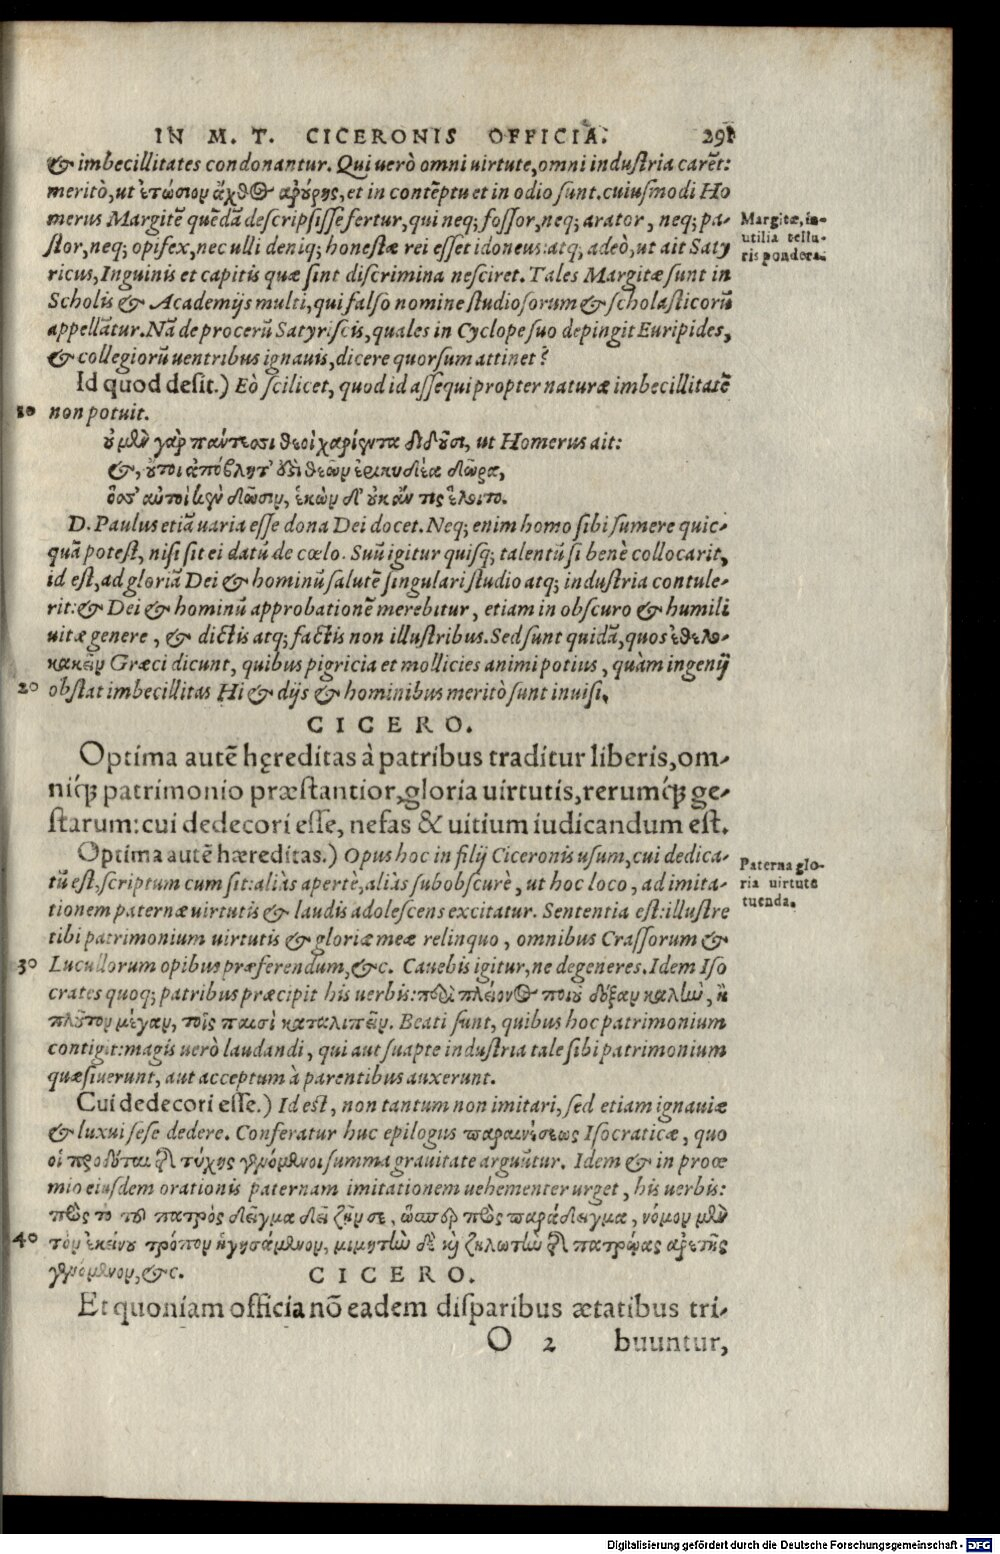 IN M. T. CICERONIS OFFICIA. 291
& imbecillitates condonantur. Qui uerò omni uirtute, omni industria carēt:
meritò, ut ἐτώσιον ἄχθος ἀρούρης, et in contēptu et in odio sunt. cuiusmodi Ho
merus Margitē quēdā descripsisse fertur, qui neq; fossor, neq; arator, neq; pa-
stor, neq; opifex, nec ulli deniq; honestæ rei esset idoneus: atq; adeò, ut ait Saty
ricus, Inguinis et capitis quæ sint discrimina nesciret. Tales Margitæ sunt in
Scholis & Academijs multi, qui falso nomine studiosorum & scholasticorū
appellātur. Nā de procerū Satyriscis, quales in Cyclope suo depingit Euripides,
& collegiorū uentribus ignauis, dicere quorsum attinet?
Margitæ, in-
utilia tellu-
ris pondera.
Id quod desit.) Eò scilicet, quod id assequi propter naturæ imbecillitatē
10 non potuit.
οὐ μὲν γὰρ πάντεσσι θεοὶ χαρίεντα διδοῦσι, ut Homerus ait:
&, οὔτοι ἀπόβλητ' ἐστὶ θεῶν ἐρικυδέα δῶρα,
ὅσσ' αὐτοὶ κεν δῶσιν, ἑκὼν δ' οὐκ ἄν τις ἕλοιτο.
D. Paulus etiā uaria esse dona Dei docet. Neq; enim homo sibi sumere quic-
quā potest, nisi sit ei datū de cœlo. Suū igitur quisq; talentū si benè collocarit,
id est, ad gloriā Dei & hominū salutē singulari studio atq; industria contule-
rit: & Dei & hominū approbationē merebitur, etiam in obscuro & humili
uitæ genere, & dictis atq; factis non illustribus. Sed sunt quidā, quos ἐθελο-
κακεῖν Græci dicunt, quibus pigricia et mollicies animi potius, quàm ingenij
20 obstat imbecillitas Hi & dijs & hominibus meritò sunt inuisi.
CICERO.
Optima autē hęreditas à patribus traditur liberis, om-
niq́; patrimonio præstantior, gloria uirtutis, rerumq́; ge-
starum: cui dedecori esse, nefas & uitium iudicandum est.
Optima autē hæreditas.) Opus hoc in filij Ciceronis usum, cui dedica-
tū est, scriptum cum sit: aliàs apertè, aliàs subobscurè, ut hoc loco, ad imita-
tionem paternæ uirtutis & laudis adolescens excitatur. Sententia est: illustre
tibi patrimonium uirtutis & gloriæ meæ relinquo, omnibus Crassorum &
30 Lucullorum opibus præferendum, &c. Cauebis igitur, ne degeneres. Idem Iso
crates quoq; patribus præcipit his uerbis: περὶ πλείονος ποιοῦ δόξαν καλὴν, ἢ
πλοῦτον μέγαν, τοῖς παισὶ καταλιπεῖν. Beati sunt, quibus hoc patrimonium
contigit: magis uerò laudandi, qui aut suapte industria tale sibi patrimonium
quæsiuerunt, aut acceptum à parentibus auxerunt.
Paterna glo-
ria uirtute
tuenda.
Cui dedecori esse.) Id est, non tantum non imitari, sed etiam ignauiæ
& luxui sese dedere. Conferatur huc epilogus παραινέσεως Isocraticæ, quo
οἱ προδόται τῆς τύχης γενόμενοι summa grauitate arguūtur. Idem & in proœ
mio eiusdem orationis paternam imitationem uehementer urget, his uerbis:
πρὸς τὸ τοῦ πατρὸς δεῖγμα δεῖ ζῆν σε, ὥσπερ πρὸς παράδειγμα, νόμον μὲν
40 τὸν ἐκείνου τρόπον ἡγησάμενον, μιμητὴν δὲ καὶ ζηλωτὴν τῆς πατρῴας ἀρετῆς
γενόμενον, &c. CICERO.
Et quoniam officia nō eadem disparibus ætatibus tri-
O 2 buuntur,
Digitalisierung gefördert durch die Deutsche Forschungsgemeinschaft - DFG